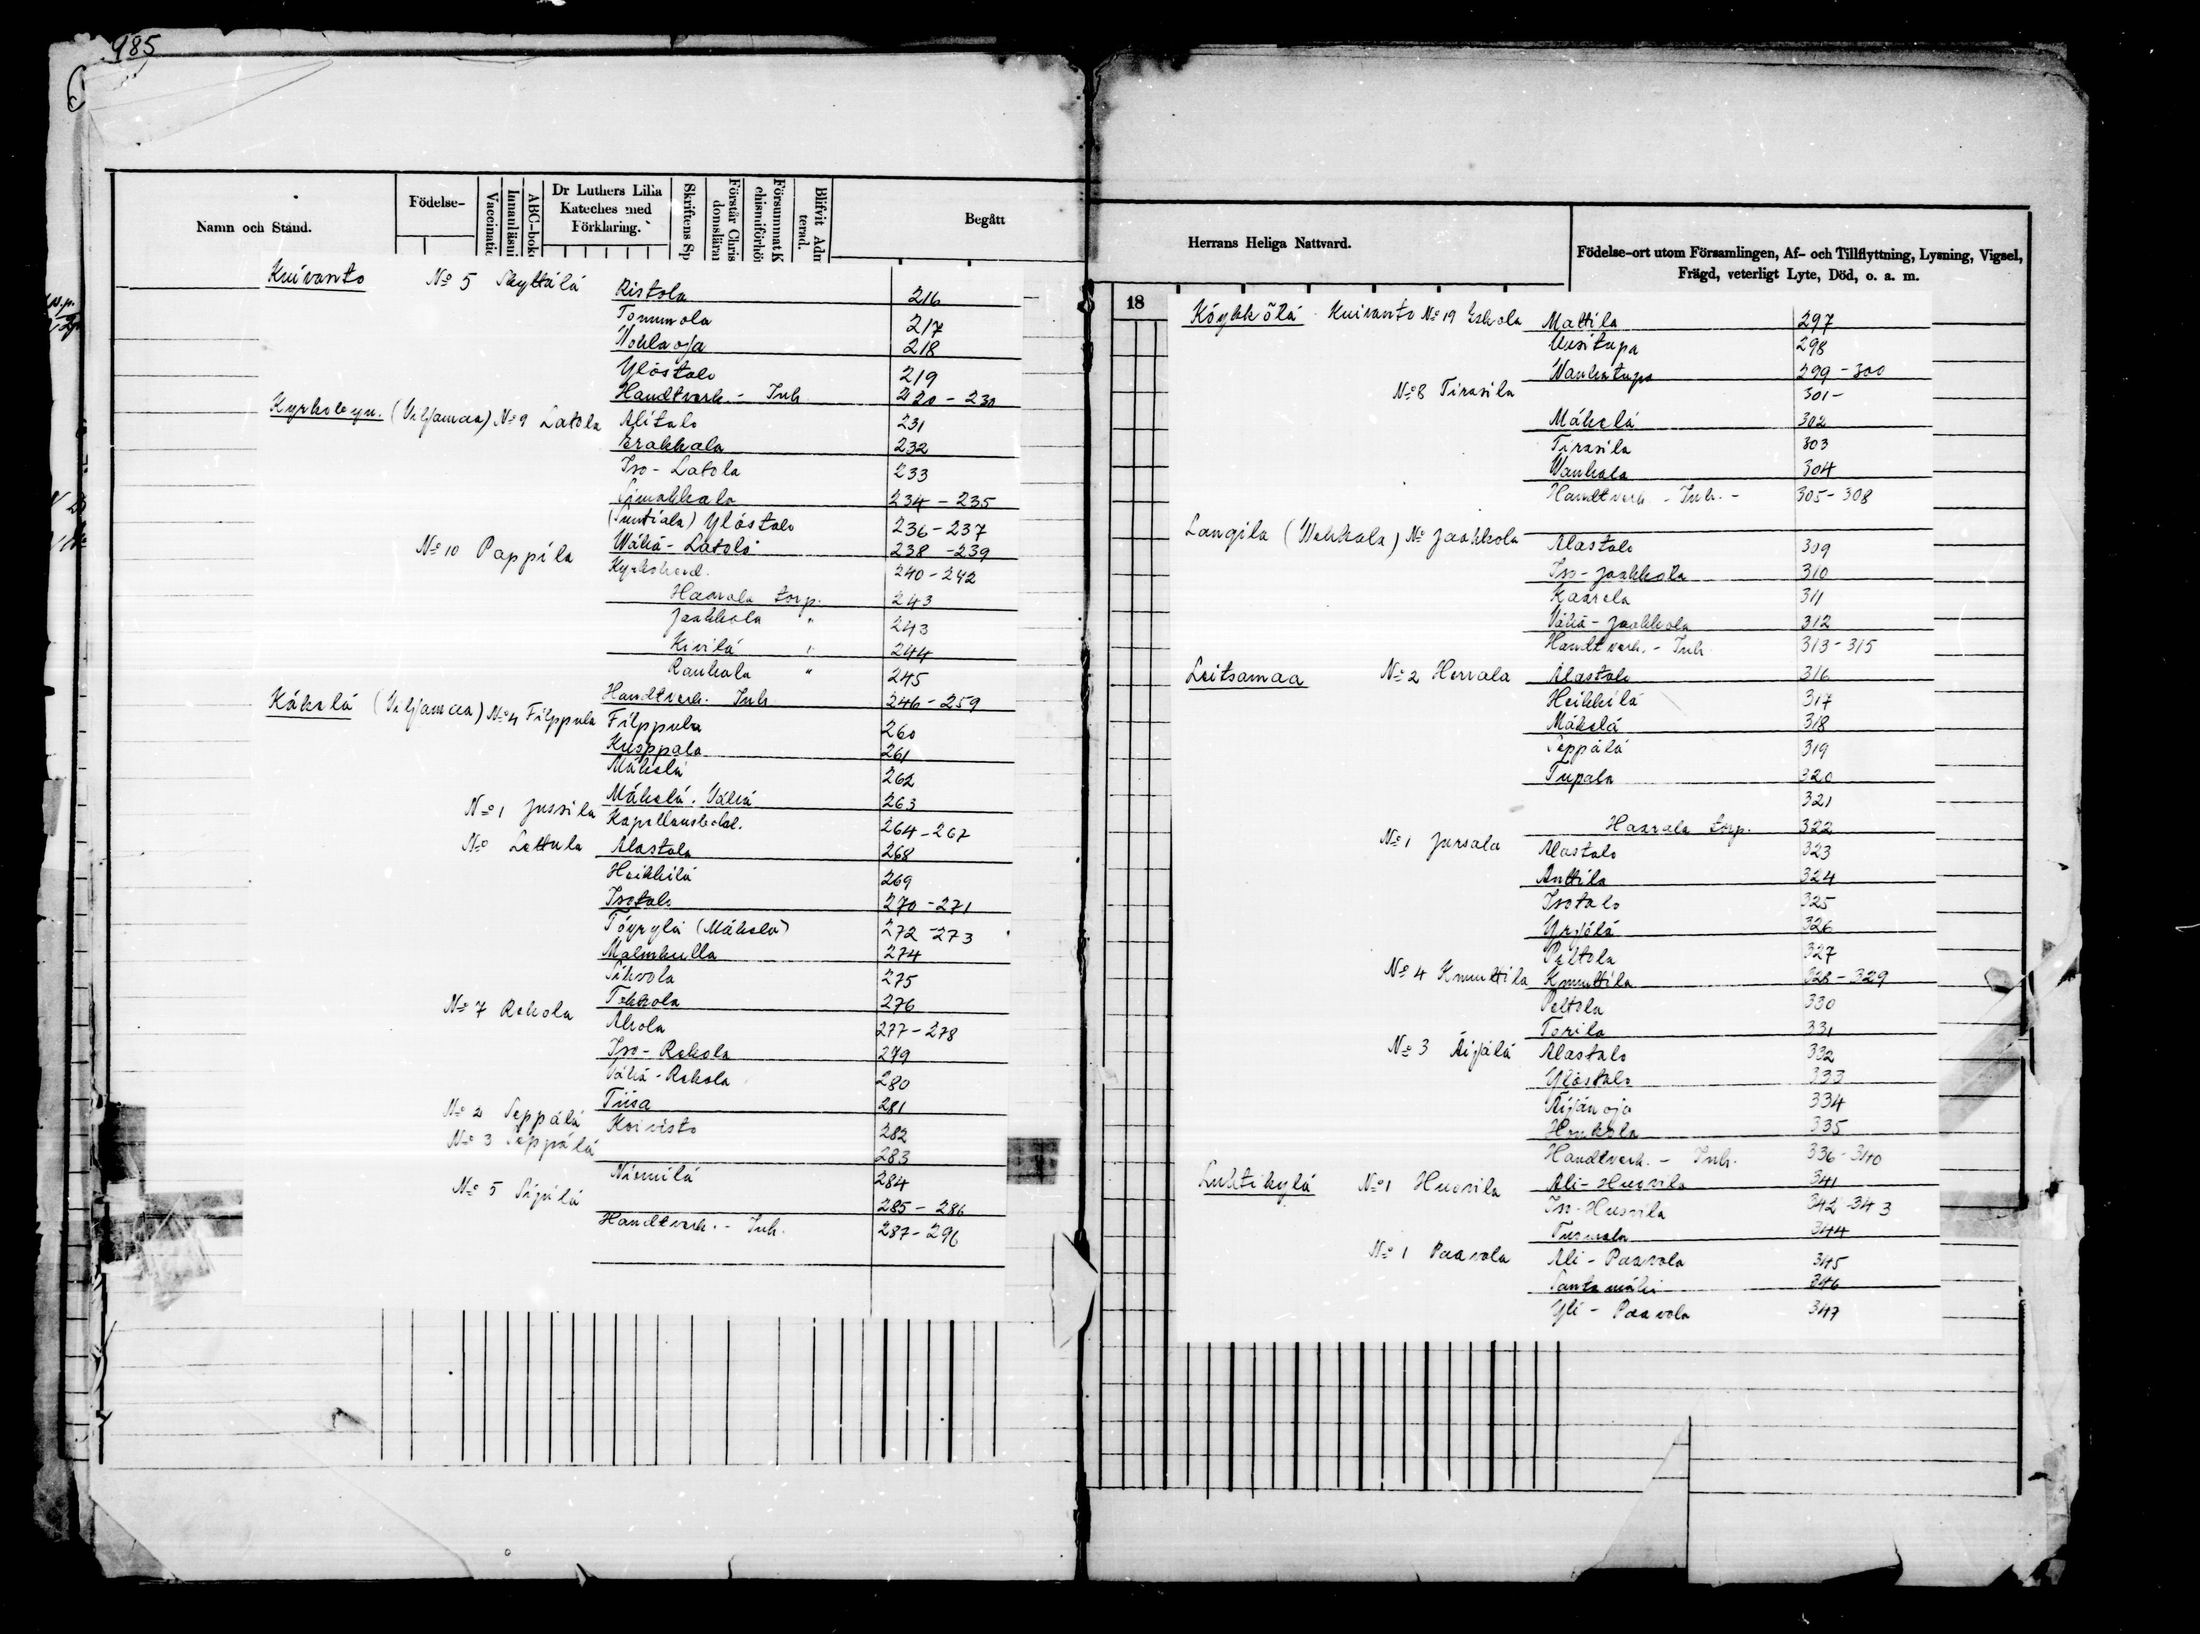 985
Namn och Stånd.
Födelse-
Vaccinatio
Innanläsni
ABC-bok
Dr Luthers Lilla Kateches med Förklaring.
Skriftens Sp
Förstår Chris domslära
Försummat K chismiförhör
Blifvit Adm terad.
Begått
Kuivanto No 5 Skyttälä Ristola 216
Tommola 217
Nokla oja 218
Ylöstalo 219
Handtverk. - Inh. 220 - 230
Kyrkobyn. (Viljamaa) No 9 Latola Alitalo 231
Erakkala 232
Iso - Latola 233
Simakkala 234 - 235
(Suntiala) Ylöstalo 236 - 237
Wähä - Latola 238 - 239
No 10 Pappila Kyrkoherd. 240 - 242
Haarala torp. 243
Jaakkola " 243
Kivilä " 244
Rauhala " 245
Handtverk. Inh. 246 - 259
Käkelä (Viljamaa) No 4 Filppula Filppula 260
Kuoppala 261
Mäkelä 262
Mäkelä. Vähä 263
No 1 Jussila Kapellansbolet. 264 - 267
No Lattula Alastalo 268
Heikkilä 269
Isotalo 270 - 271
Töyrylä (Mäkelä) 272 - 273
Malmkulla 274
Sikvola 275
Tekkola 276
No 7 Rekola Ahola 277 - 278
Iso - Rekola 279
Vähä - Rekola 280
Tiisa 281
No 2 Seppälä Koivisto 282
No 3 Seppälä 283
Niemilä 284
No 5 Sipilä 285 - 286
Handtverk. - Inh. 287 - 296
Herrans Heliga Nattvard.
Födelse-ort utom Församlingen, Af- och Tillflyttning, Lysning, Vigsel,
Frägd, veterligt Lyte, Död, o. a. m.
18
Köykkölä Kuivanto No 19 Eskola Mattila 297
Uusitupa 298
Wanhatupa 299 - 300
No 8 Tirasila 301 -
Mäkelä 302
Tirasila 303
Wanhala 304
Handtverk - Inh. - 305 - 308
Langila (Wekkala) No Jaakkola
Alastalo 309
Iso - Jaakkola 310
Kaarela 311
Vähä - Jaakkola 312
Handtverk. - Inh. 313 - 315
Leitsamaa No 2 Herrala Alastalo 316
Heikkilä 317
Mäkelä 318
Seppälä 319
Tupala 320
321
Haarala torp. 322
No 1 Jursala Alastalo 323
Anttila 324
Isotalo 325
Yrjölä 326
Peltola 327
No 4 Knuuttila Knuuttila 328 - 329
Peltola 330
Torila 331
No 3 Äijälä Alastalo 332
Ylöstalo 333
Äijän oja 334
Honkola 335
Handtverk. - Inh. 336 - 340
Luhtikylä No 1 Huovila Ali - Huovila 341
Iso - Huovila 342 - 343
Tuomola 344
No 1 Paavola Ali - Paavola 345
Santamäki 346
Yli - Paavola 347